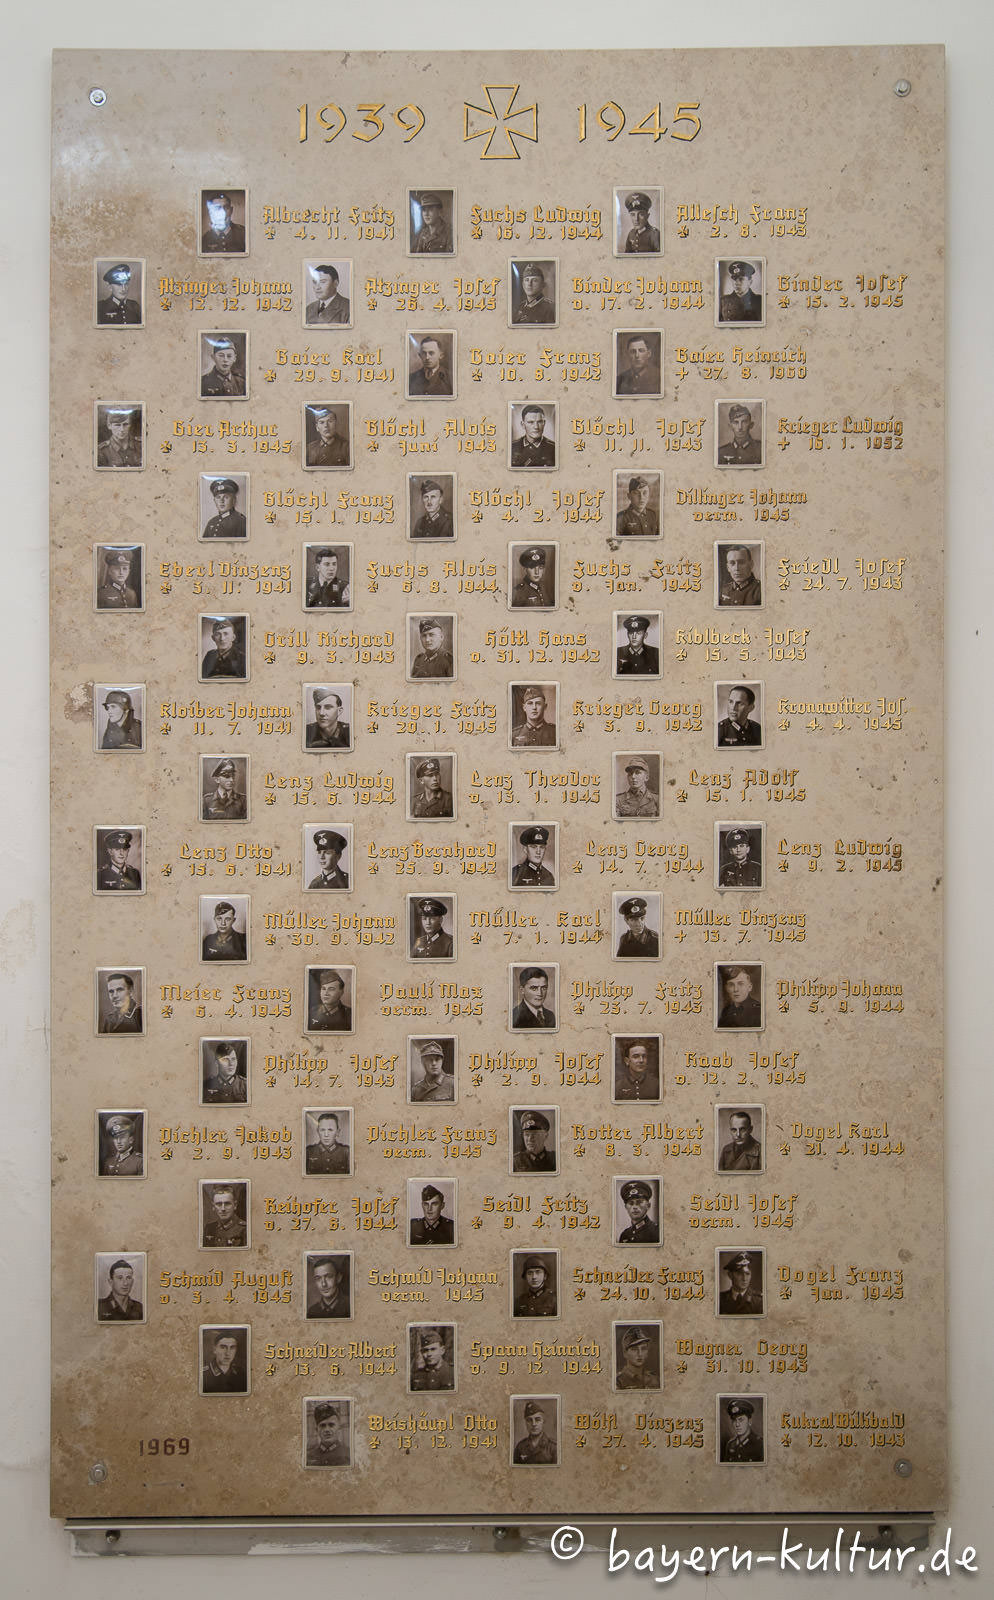 1939 1945
Albrecht Fritz Fuchs Ludwig Allesch Franz
4. 11. 1941 16. 12. 1944 2. 8. 1943
Atzinger Johann Atzinger Josef Binder Johann Binder Josef
12. 12. 1942 26. 4. 1945 v. 17. 2. 1944 15. 2. 1945
Baier Karl Baier Franz Baier Heinrich
29. 9. 1941 10. 8. 1942 + 27. 8. 1960
Bier Arthur Blöchl Alois Blöchl Josef Krieger Ludwig
13. 3. 1945 Juni 1943 11. 11. 1943 + 16. 1. 1952
Blöchl Franz Blöchl Josef Dillinger Johann
15. 1. 1942 4. 2. 1944 verm. 1945
Eberl Vinzenz Fuchs Alois Fuchs Fritz Friedl Josef
3. 11. 1941 6. 8. 1944 v. Jan. 1943 24. 7. 1943
Grill Richard Höltl Hans Kiblbeck Josef
9. 3. 1943 v. 31. 12. 1942 15. 5. 1943
Kloiber Johann Krieger Fritz Krieger Georg Kronawitter Jos.
11. 7. 1941 20. 1. 1945 3. 9. 1942 4. 4. 1945
Lenz Ludwig Lenz Theodor Lenz Adolf
15. 6. 1944 v. 13. 1. 1945 15. 1. 1945
Lenz Otto Lenz Bernhard Lenz Georg Lenz Ludwig
15. 6. 1941 25. 9. 1942 14. 7. 1944 9. 2. 1945
Müller Johann Müller Karl Müller Vinzenz
30. 9. 1942 7. 1. 1944 + 13. 7. 1945
Meier Franz Pauli Max Philipp Fritz Philipp Johann
6. 4. 1945 verm. 1945 25. 7. 1943 5. 9. 1944
Philipp Josef Philipp Josef Raab Josef
14. 7. 1943 2. 9. 1944 v. 12. 2. 1945
Pichler Jakob Pichler Franz Rotter Albert Vogel Karl
2. 9. 1943 verm. 1945 8. 3. 1945 21. 4. 1944
Reihofer Josef Seidl Fritz Seidl Josef
v. 27. 6. 1944 9. 4. 1942 verm. 1945
Schmid August Schmid Johann Schneider Franz Vogel Franz
v. 3. 4. 1945 verm. 1945 24. 10. 1944 Jan. 1945
Schneider Albert Spann Heinrich Wagner Georg
13. 6. 1944 v. 9. 12. 1944 31. 10. 1943
Weishäupl Otto Wölfl Vinzenz Kukral Willibald
13. 12. 1941 27. 4. 1945 12. 10. 1943
1969
© bayern-kultur.de